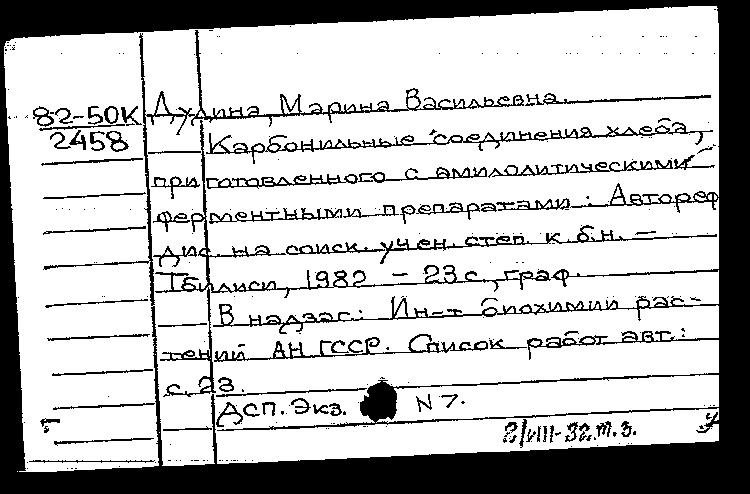 82-50К Дудина, Марина Васильевна.
2458 Карбонильные соединения хлеба,
приготовленного с амилолитическими
ферментными препаратами: Автореф
дис. на соиск. учен. степ. к.б.н. –
Тбилиси, 1982 – 23 с., граф.
В надзаг.: Ин-т биохимии рас-
тений АН ГССР. Список работ авт.:
с. 23.
ДСП. Экз. N 7.
т.з.